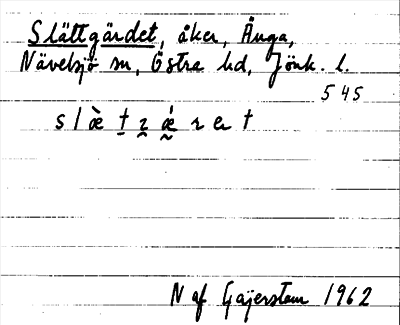 Slättgärdet, åker, Ånga,
Nävelsjö sn, Östra hd, Jönk. l.
545
N af Geijerstam 1962